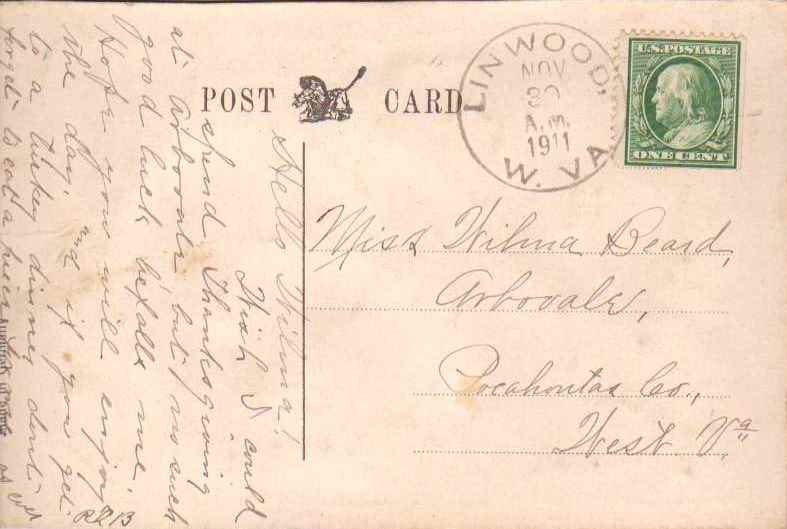 POST CARD
LINWOOD,
NOV
30
A.M.
1911
W. VA
U.S. POSTAGE
ONE CENT
Miss Wilma Beard,
Arbovale,
Pocahontas Co.,
West Va
Hello Wilma!
Wish I could
spend Thanksgiving
at Arbovale but no such
good luck befalls me.
Hope you will enjoy
the day, and if you get
to a turkey dinner dont
forget to eat a piece
as ever